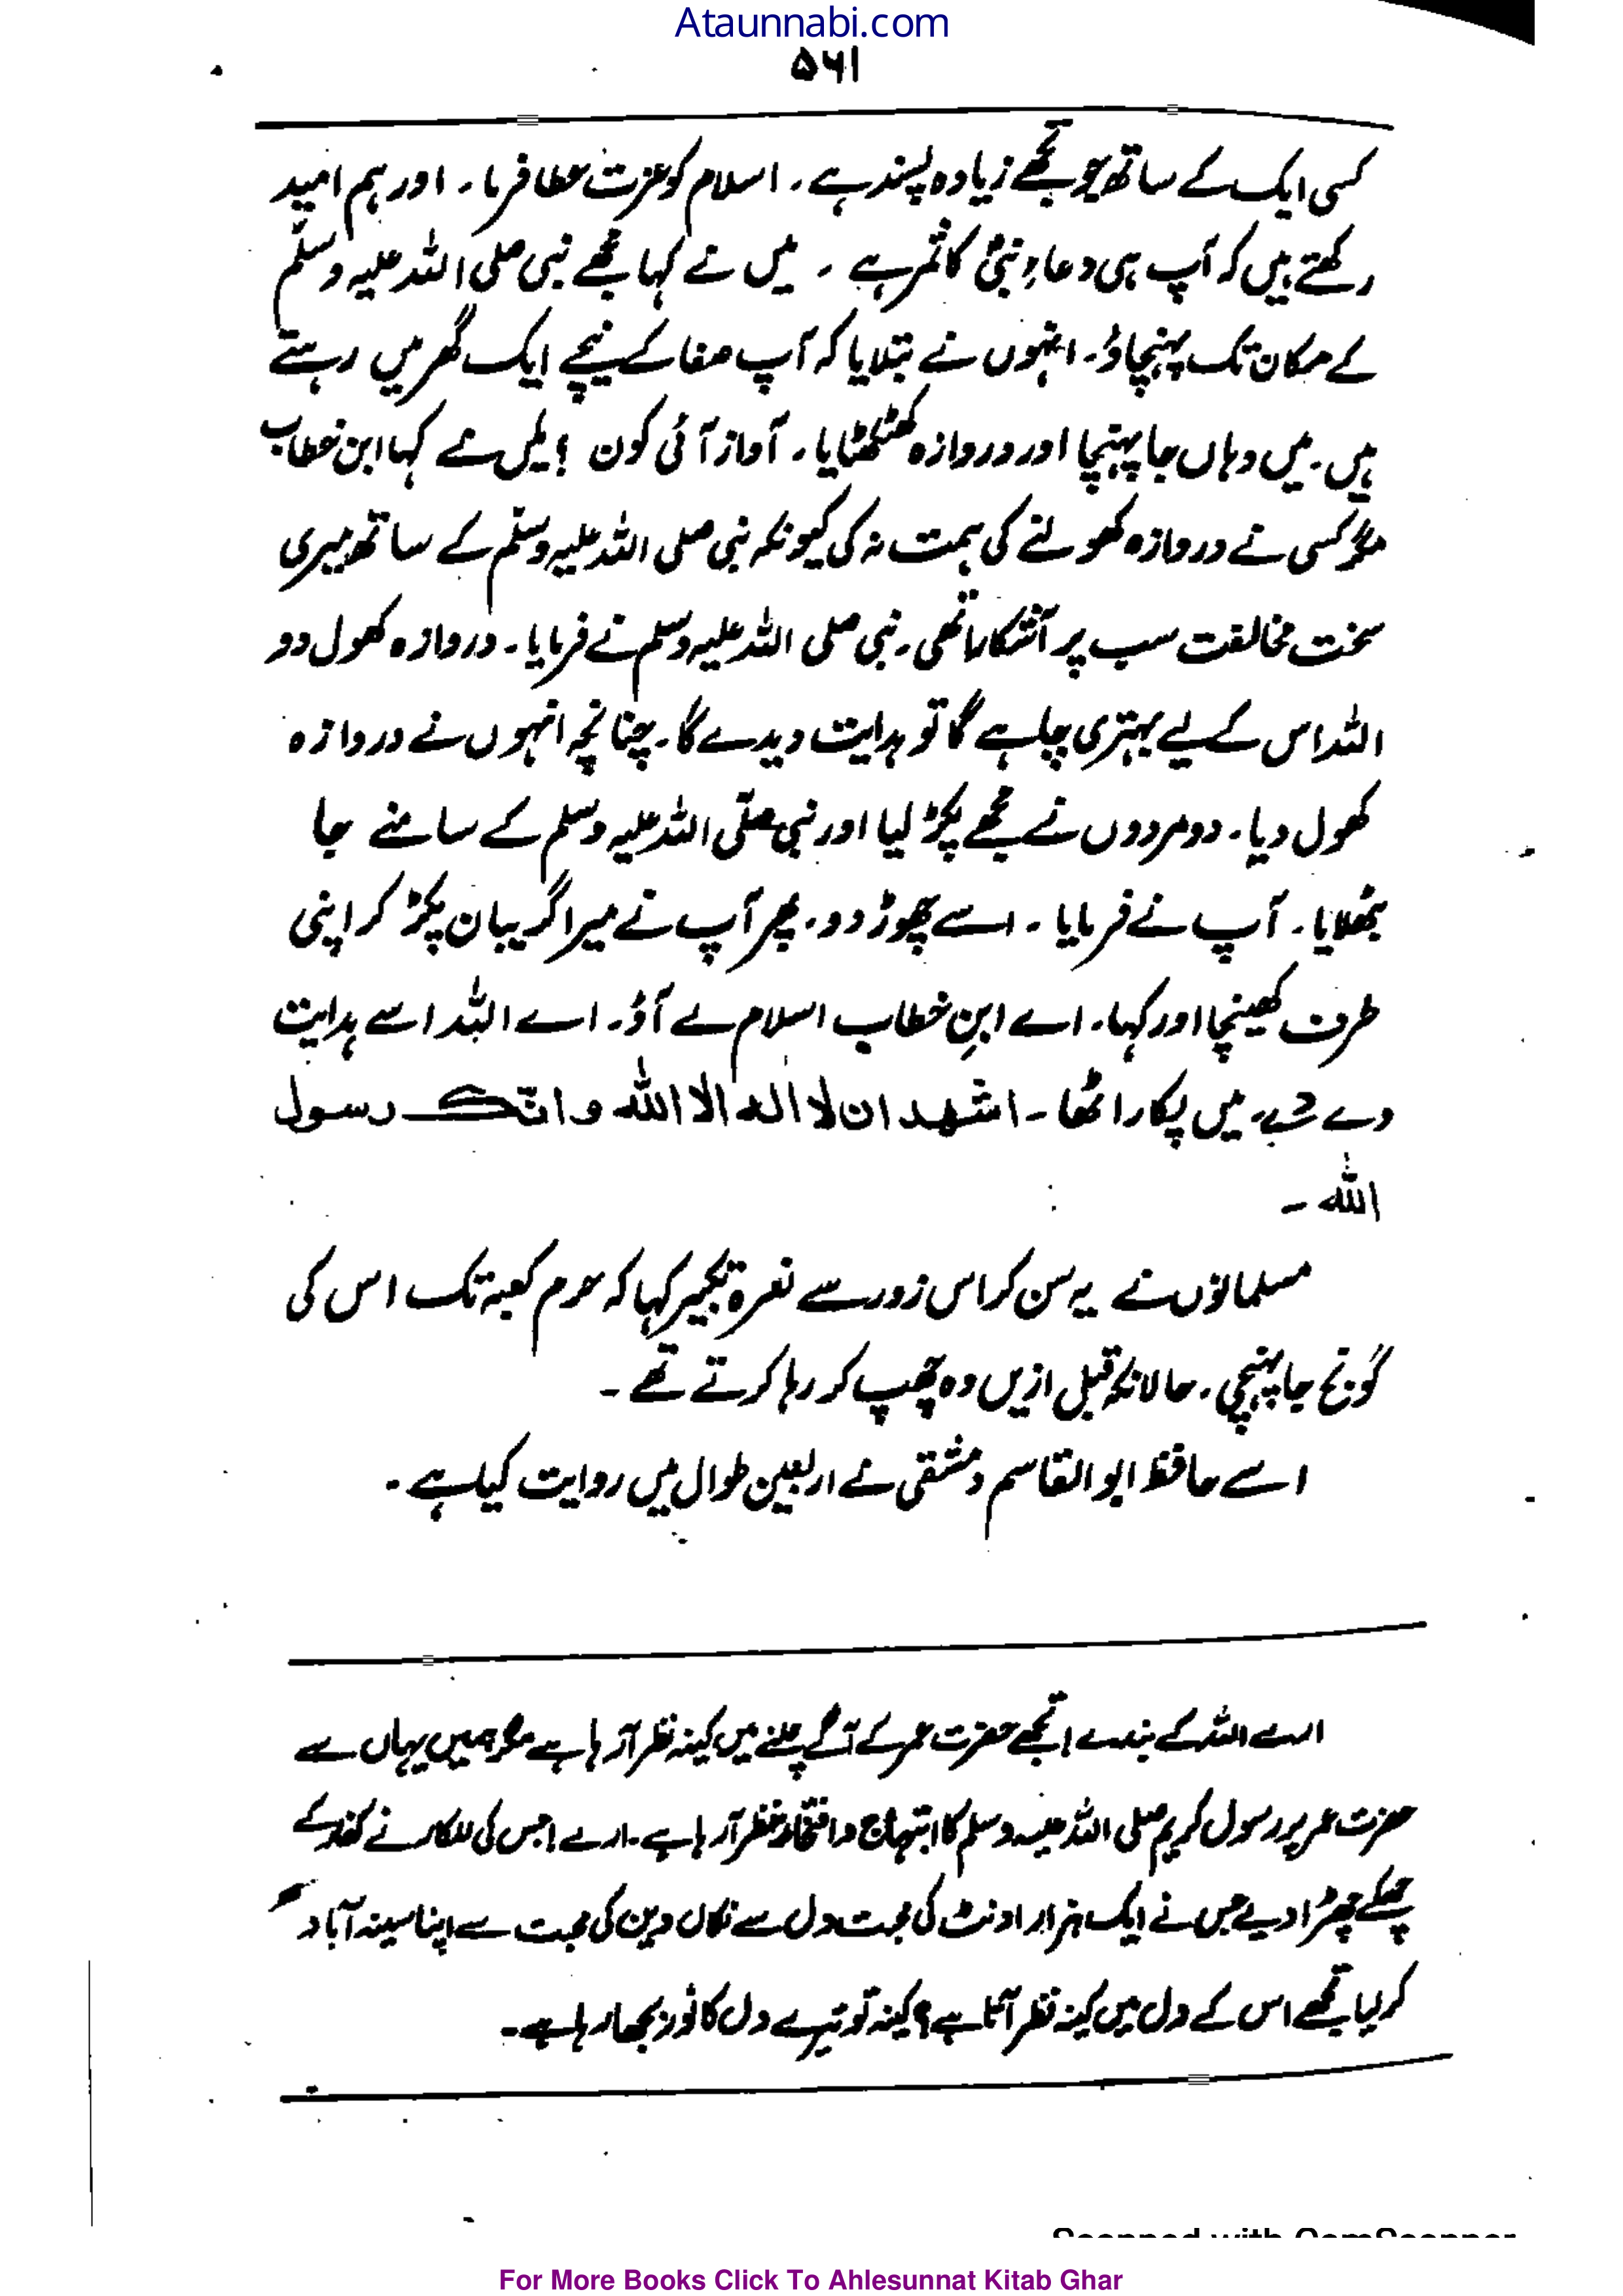 Ataunnabi.com
۵۶۱
کسی ایک کے ساتھ جو تجھے زیادہ پسند ہے ۔ اسلام کو عزت عطا فرما ۔ اور ہم امید
رکھتے ہیں کہ آپ ہی دعاءِ نبیؐ کا ثمر ہے ۔ میں نے کہا مجھے نبی صلی اللہ علیہ وسلّم
کے مکان تک پہنچاؤ ۔ انہوں نے بتلایا کہ آپ صفا کے نیچے ایک گھر میں رہتے
ہیں ۔ میں وہاں جا پہنچا اور دروازہ کھٹکھٹایا ۔ آواز آئی کون ؟ میں نے کہا ابن خطاب
مگر کسی نے دروازہ کھولنے کی ہمت نہ کی کیونکہ نبی صلی اللہ علیہ وسلّم کے ساتھ میری
سخت مخالفت سب پر آشکارا تھی ۔ نبی صلی اللہ علیہ وسلم نے فرمایا ۔ دروازہ کھول دو
اللہ اس کے لیے بہتری چاہے گا تو ہدایت دیدے گا ۔ چنانچہ انہوں نے دروازہ
کھول دیا ۔ دو مردوں نے مجھے پکڑ لیا اور نبی صلّی اللہ علیہ وسلم کے سامنے جا
بٹھلایا ۔ آپ نے فرمایا ۔ اسے چھوڑ دو ۔ پھر آپ نے میرا گریبان پکڑ کر اپنی
طرف کھینچا اور کہا ۔ اے ابنِ خطاب اسلام لے آؤ ۔ اے اللہ اسے ہدایت
دے میں پکار اٹھا ۔ اشهد ان لا اله الا الله و انّك رسول
الله ۔
مسلمانوں نے یہ سن کر اس زور سے نعرہ تکبیر کہا کہ حرم کعبہ تک اس کی
گونج جا پہنچی ۔ حالانکہ قبل ازیں وہ چھپ کر رہا کرتے تھے ۔
اسے حافظ ابو القاسم دمشقی نے اربعین طوال میں روایت کیا ہے ۔
ارے اللہ کے بندے ! تجھے حضرت عمر کے آگے چلنے میں کینہ نظر آ رہا ہے مگر ہمیں یہاں سے
حضرت عمر پر رسول کریم صلی اللہ علیہ وسلم کا ابتہاج و افتخار نظر آ رہا ہے ۔ ارے ! جس کی للکار نے کفر کے
چھکے چھڑا دیے جس نے ایک ہزار اونٹ کی محبت دل سے نکال دین کی محبت سے اپنا سینہ آباد
کر لیا تجھے اس کے دل میں کینہ نظر آتا ہے ؟ کینہ تو تیرے دل کا نور بجھا رہا ہے ۔
For More Books Click To Ahlesunnat Kitab Ghar